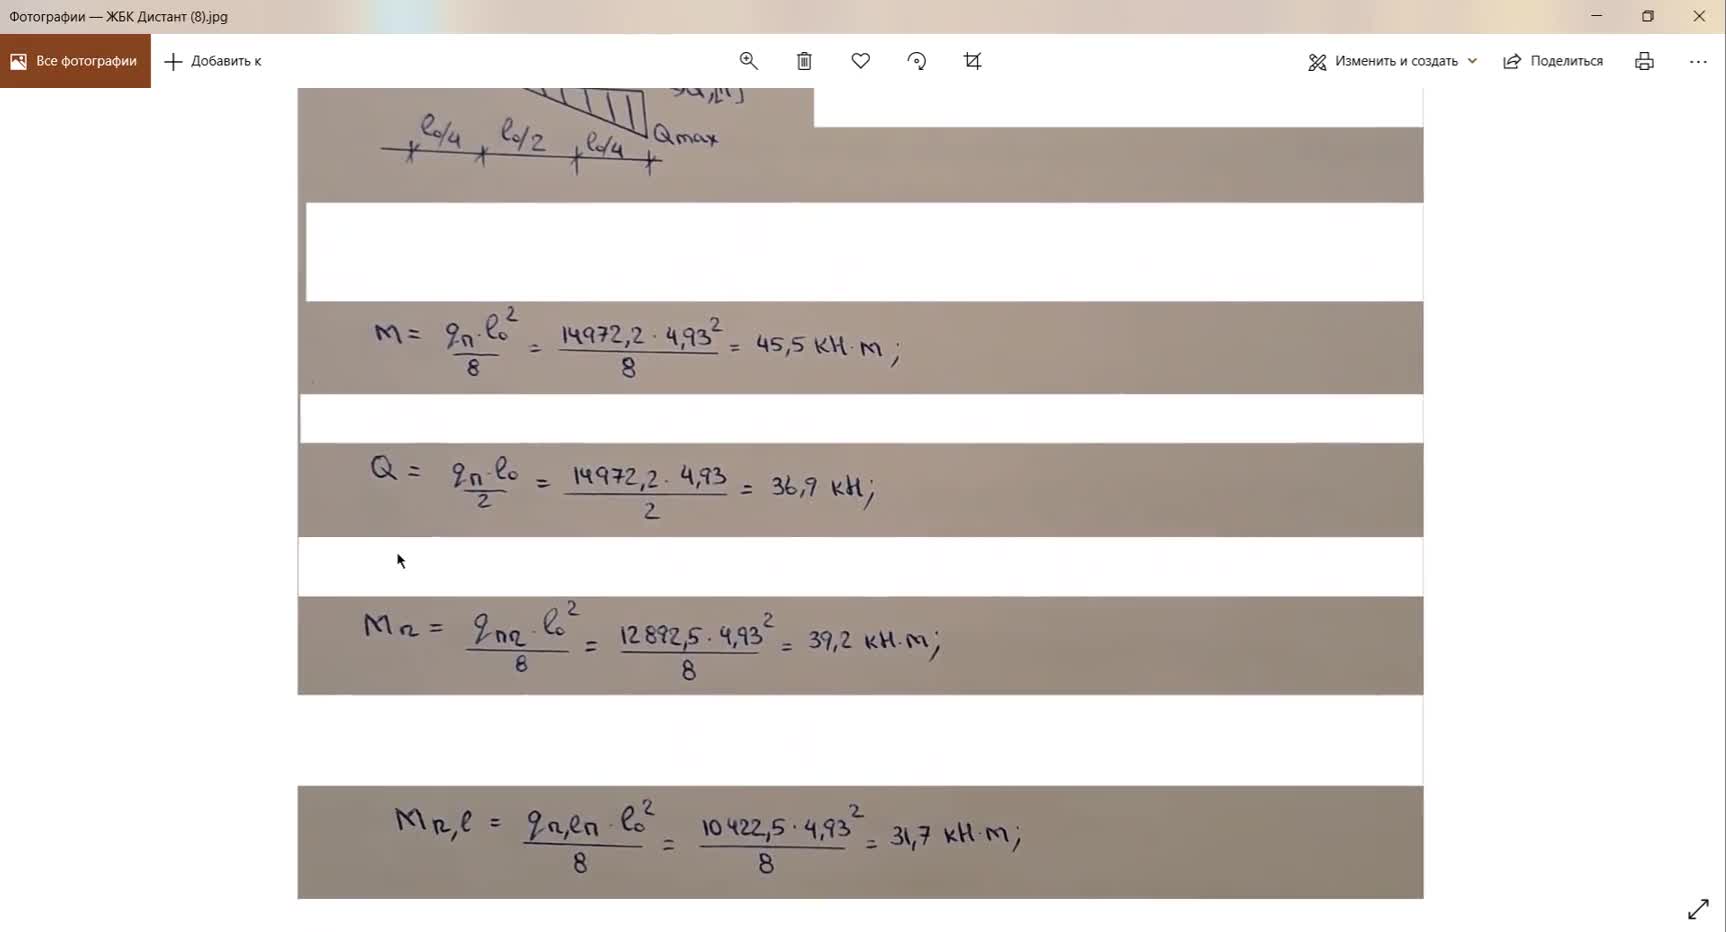 Фотографии — ЖБК Дистант (8).jpg
Все фотографии
Добавить к
Изменить и создать
Поделиться
l₀/4 l₀/2 l₀/4 Qmax
M = qп·l₀²/8 = 14972,2·4,93²/8 = 45,5 кН·м;
Q = qп·l₀/2 = 14972,2·4,93/2 = 36,9 кН;
Mn = qпn·l₀²/8 = 12892,5·4,93²/8 = 39,2 кН·м;
Mn,l = qn,lп·l₀²/8 = 10422,5·4,93²/8 = 31,7 кН·м;